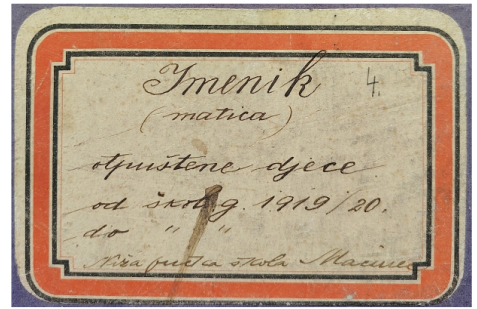 Imenik 4.
(matica)
otpuštene djece
od škol. g. 1919/20.
do " "
Niža pučka škola Macinec